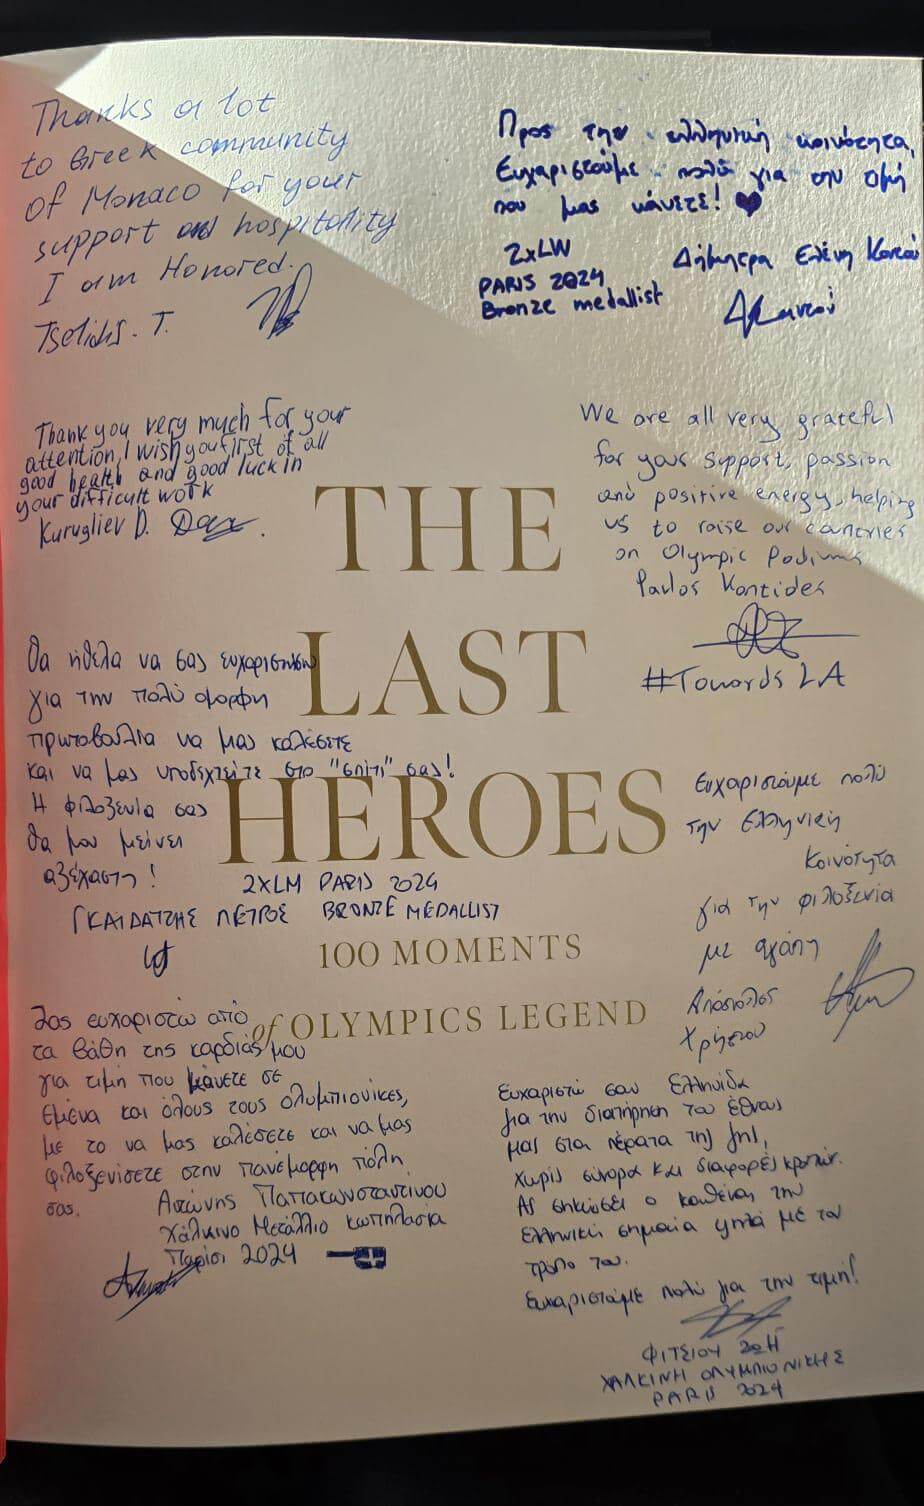 Thanks a lot
to Greek community
of Monaco for your
support and hospitality
I am Honored.
Tselidis. T.
Προς την ελληνική κοινότητα,
Ευχαριστούμε πολύ για την τιμή
που μας κάνετε! ♥
2xLW
PARIS 2024
Bronze medallist
Δήμητρα Ελένη Κοντού
Δκοντού
Thank you very much for your
attention, I wish you first of all
good health and good luck in
your difficult work
Kurugliev D.
We are all very grateful
for your support, passion
and positive energy, helping
us to raise our countries
on Olympic Podiums
Pavlos Kontides
#Towards LA
THE
LAST
HEROES
100 MOMENTS
of OLYMPICS LEGEND
Θα ήθελα να σας ευχαριστήσω
για την πολύ όμορφη
πρωτοβουλία να μας καλέσετε
και να μας υποδεχτείτε στο "σπίτι" σας!
Η φιλοξενία σας
θα μου μείνει
αξέχαστη!
2XLM PARIS 2024
ΓΚΑΙΔΑΤΖΗΣ ΠΕΤΡΟΣ BRONZE MEDALLIST
Ευχαριστούμε πολύ
την Ελληνική
Κοινότητα
για την φιλοξενία
με αγάπη
Απόστολος
Χρήστου
Σας ευχαριστώ από
τα βάθη της καρδιάς μου
για τιμή που κάνετε σε
εμένα και όλους τους ολυμπιονίκες,
με το να μας καλέσετε και να μας
φιλοξενίσετε στην πανέμορφη πόλη
σας.
Αντώνης Παπακωνσταντίνου
Χάλκινο Μετάλλιο κωπηλασία
Παρίσι 2024
Ευχαριστώ σαν Ελληνίδα
για την διατήρηση του έθνους
μας στα πέρατα της γης,
χωρίς σύνορα και διαφορές κρατών.
Ας σηκώσει ο καθένας την
ελληνική σημαία ψηλά με τον
τρόπο του.
Ευχαριστούμε πολύ για την τιμή!
ΦΙΤΣΙΟΥ ΖΩΗ
ΧΑΛΚΙΝΗ ΟΛΥΜΠΙΟΝΙΚΗΣ
PARIS 2024